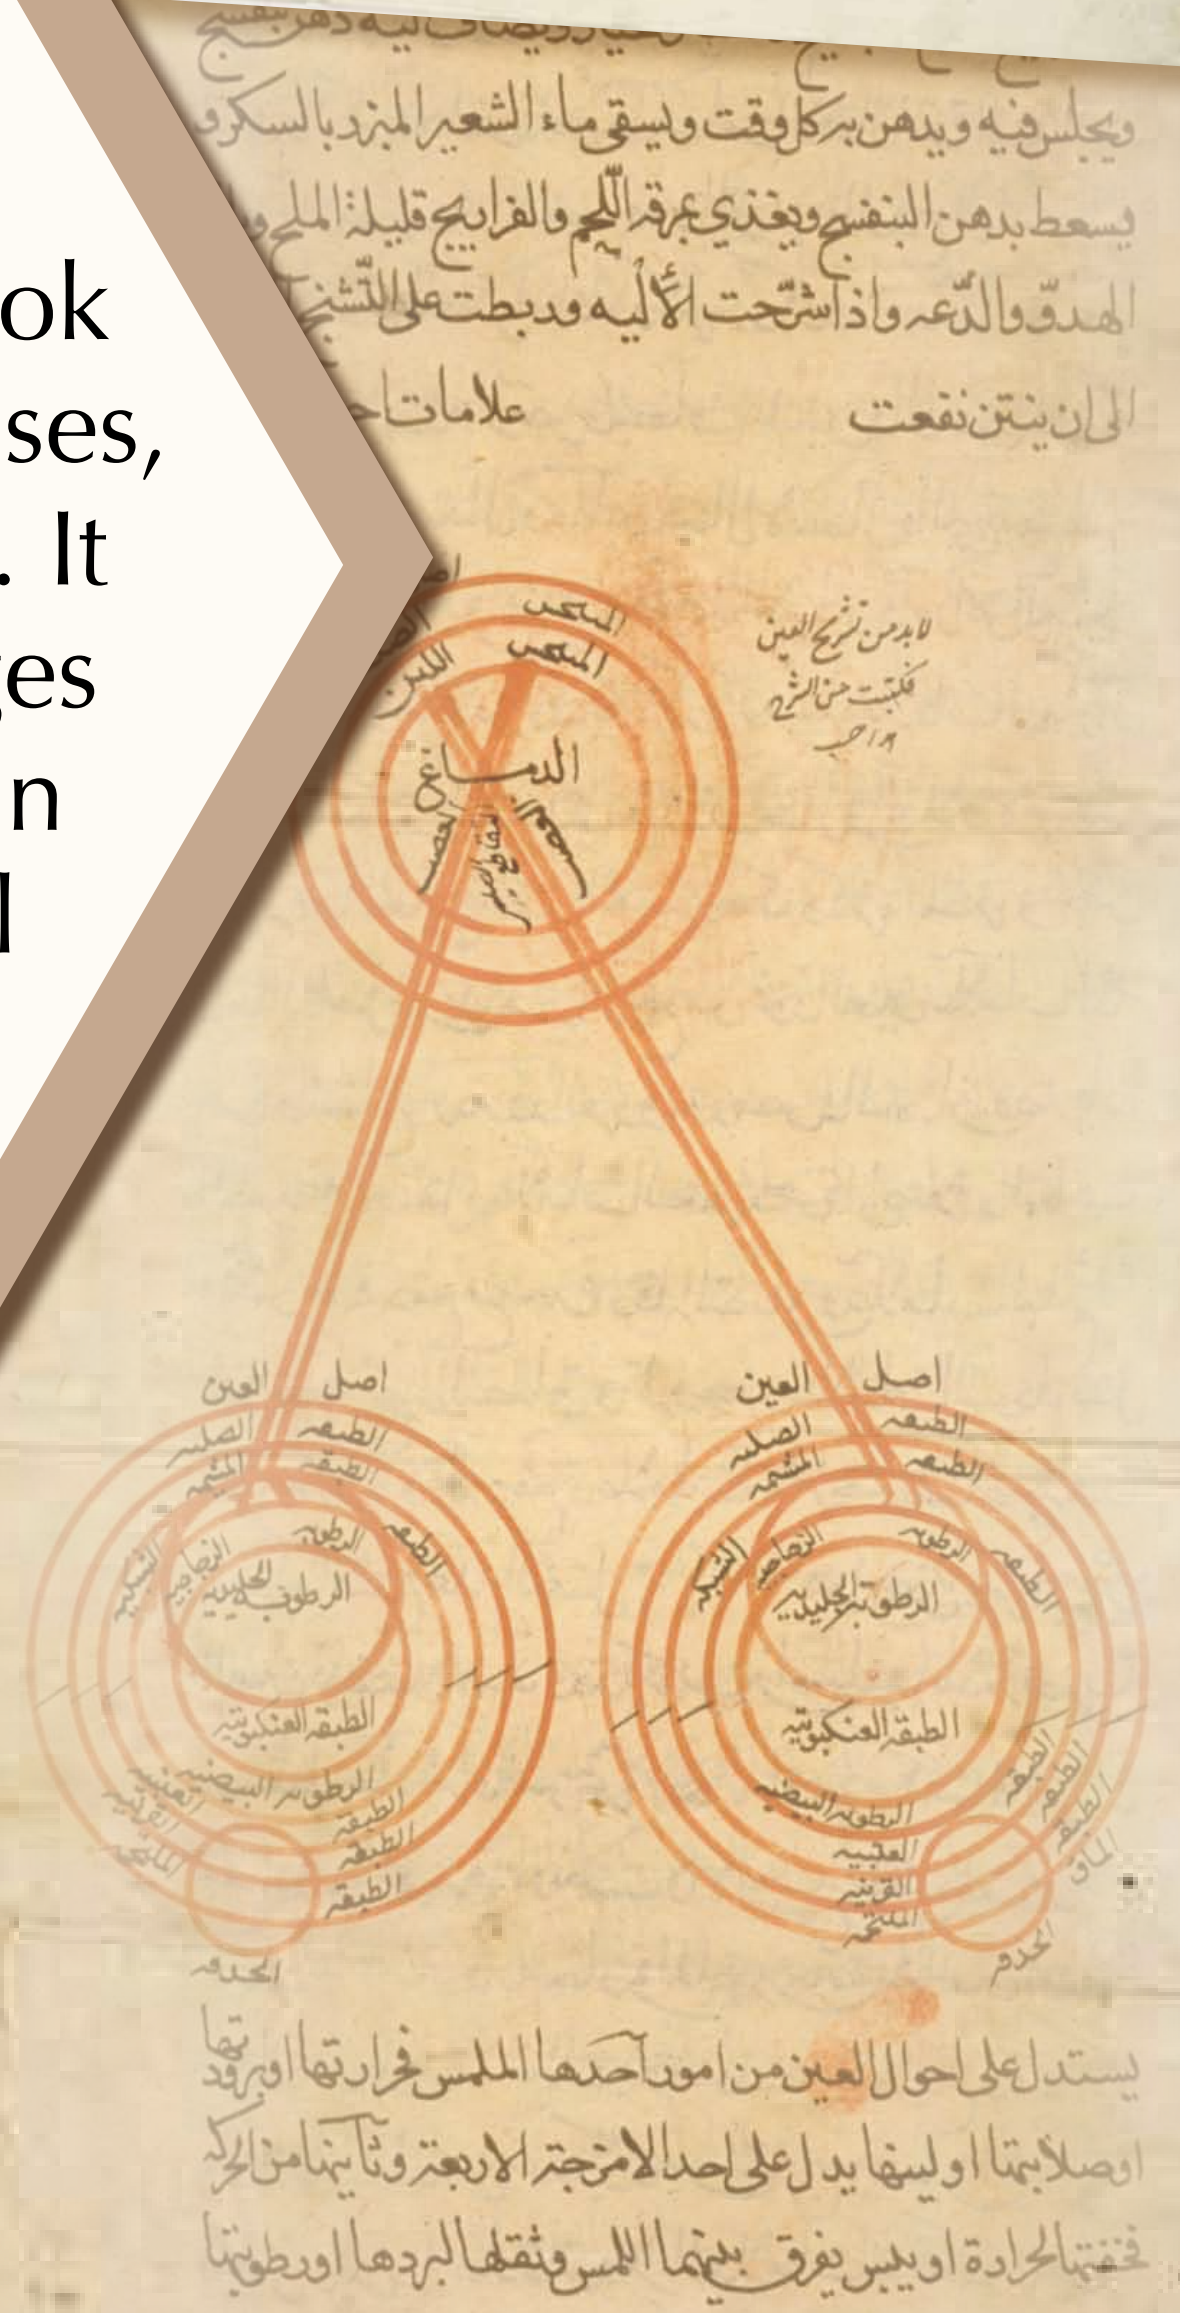 ok
ses,
. It
ges
n
l
ويجلس فيه ويدهن به كل وقت ويسقى ماء الشعير المبرد بالسكر و
يسعط بدهن البنفسج ويغذي بمرقة اللحم والفراريج قليلة الملح
الهدوّ والدّعه واذا شرّحت الألْيه وربطت على التّشنج
الى ان ينتن نفعت علامات
لا بد من تشريح العين
فكتبت من الشرح
الدماغ
العصب
العصب
اصل العين
الطبقه الصلبه
الطبقه المشيمه
الطبقه الشبكيه
الرطوبه الزجاجيه
الرطوبه الجليديه
الطبقه العنكبوتيه
الرطوبه البيضيه
الطبقه العنبيه
الطبقه القرنيه
الطبقه الملتحمه
الحدقه
اصل العين
الطبقه الصلبه
الطبقه المشيمه
الطبقه الشبكيه
الرطوبه الزجاجيه
الرطوبة الجليديه
الطبقة العنكبوتيه
الرطوبه البيضيه
الطبقه العنبيه
الطبقه القرنيه
الطبقه الملتحمه
الماق
الحدقه
يستدل على احوال العين من امور احدها الملمس فحرارتها او برودتها
او صلابتها او لينها يدل على احد الامزجة الاربعة وثانيها من الحركه
فخفتها لحرارة او يبس يفرق بينهما اللمس وثقلها لبردها او رطوبتها